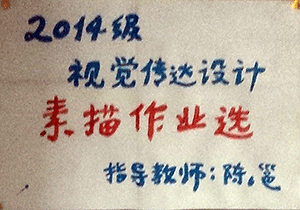 2014级
视觉传达设计
素描作业选
指导教师：陈